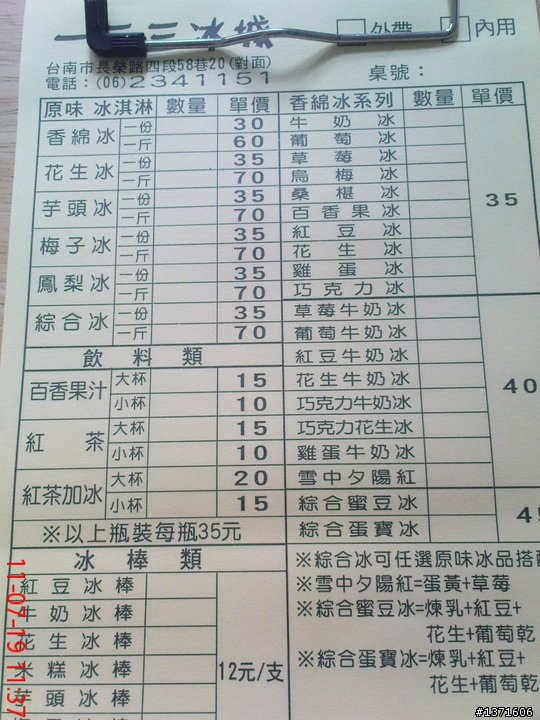 一二三冰城
外帶 內用
台南市長榮路四段58巷20(對面)
電話:(06)2341151 桌號:
原味 冰淇淋 數量 單價
香綿冰 一份 30
一斤 60
花生冰 一份 35
一斤 70
芋頭冰 一份 35
一斤 70
梅子冰 一份 35
一斤 70
鳳梨冰 一份 35
一斤 70
綜合冰 一份 35
一斤 70
飲料類
百香果汁 大杯 15
小杯 10
紅茶 大杯 15
小杯 10
紅茶加冰 大杯 20
小杯 15
※以上瓶裝每瓶35元
冰棒類
紅豆冰棒
牛奶冰棒
花生冰棒
米糕冰棒
芋頭冰棒
12元/支
香綿冰系列 數量 單價
牛奶冰
葡萄冰
草莓冰
烏梅冰
桑椹冰
百香果冰
紅豆冰
花生冰
雞蛋冰
巧克力冰
35
草莓牛奶冰
葡萄牛奶冰
紅豆牛奶冰
花生牛奶冰
巧克力牛奶冰
巧克力花生冰
雞蛋牛奶冰
雪中夕陽紅
40
綜合蜜豆冰
綜合蛋寶冰
45
※綜合冰可任選原味冰品搭配
※雪中夕陽紅=蛋黃+草莓
※綜合蜜豆冰=煉乳+紅豆+
花生+葡萄乾
※綜合蛋寶冰=煉乳+紅豆+
花生+葡萄乾
11-07-19 11:37
#1371606